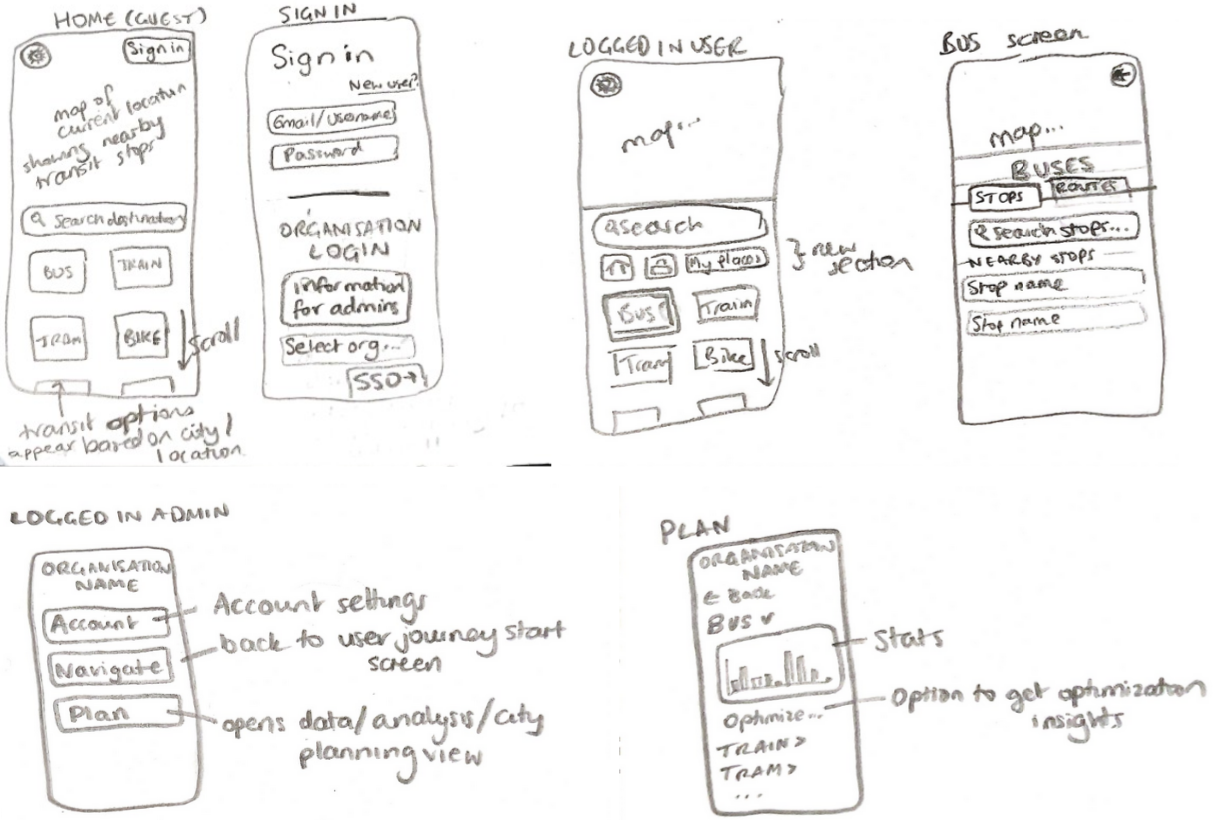 HOME (GUEST)
Sign in
map of
current location
showing nearby
transit stops
Search destination
BUS
TRAIN
TRAM
BIKE
scroll
transit options
appear based on city/
location
SIGN IN
Sign in
New user?
Email/Username
Password
ORGANISATION
LOGIN
information
for admins
Select org...
SSO→
LOGGED IN USER
map...
search
My places
} new
section
Bus
Train
Tram
Bike
scroll
BUS screen
map...
BUSES
STOPS
ROUTES
search stops...
NEARBY STOPS
Stop name
Stop name
LOGGED IN ADMIN
ORGANISATION
NAME
Account
Navigate
Plan
Account settings
back to user journey start
screen
opens data/analysis/city
planning view
PLAN
ORGANISATION
NAME
← Back
BUS ∨
Stats
Optimize...
Option to get optimization
insights
TRAIN >
TRAM >
...